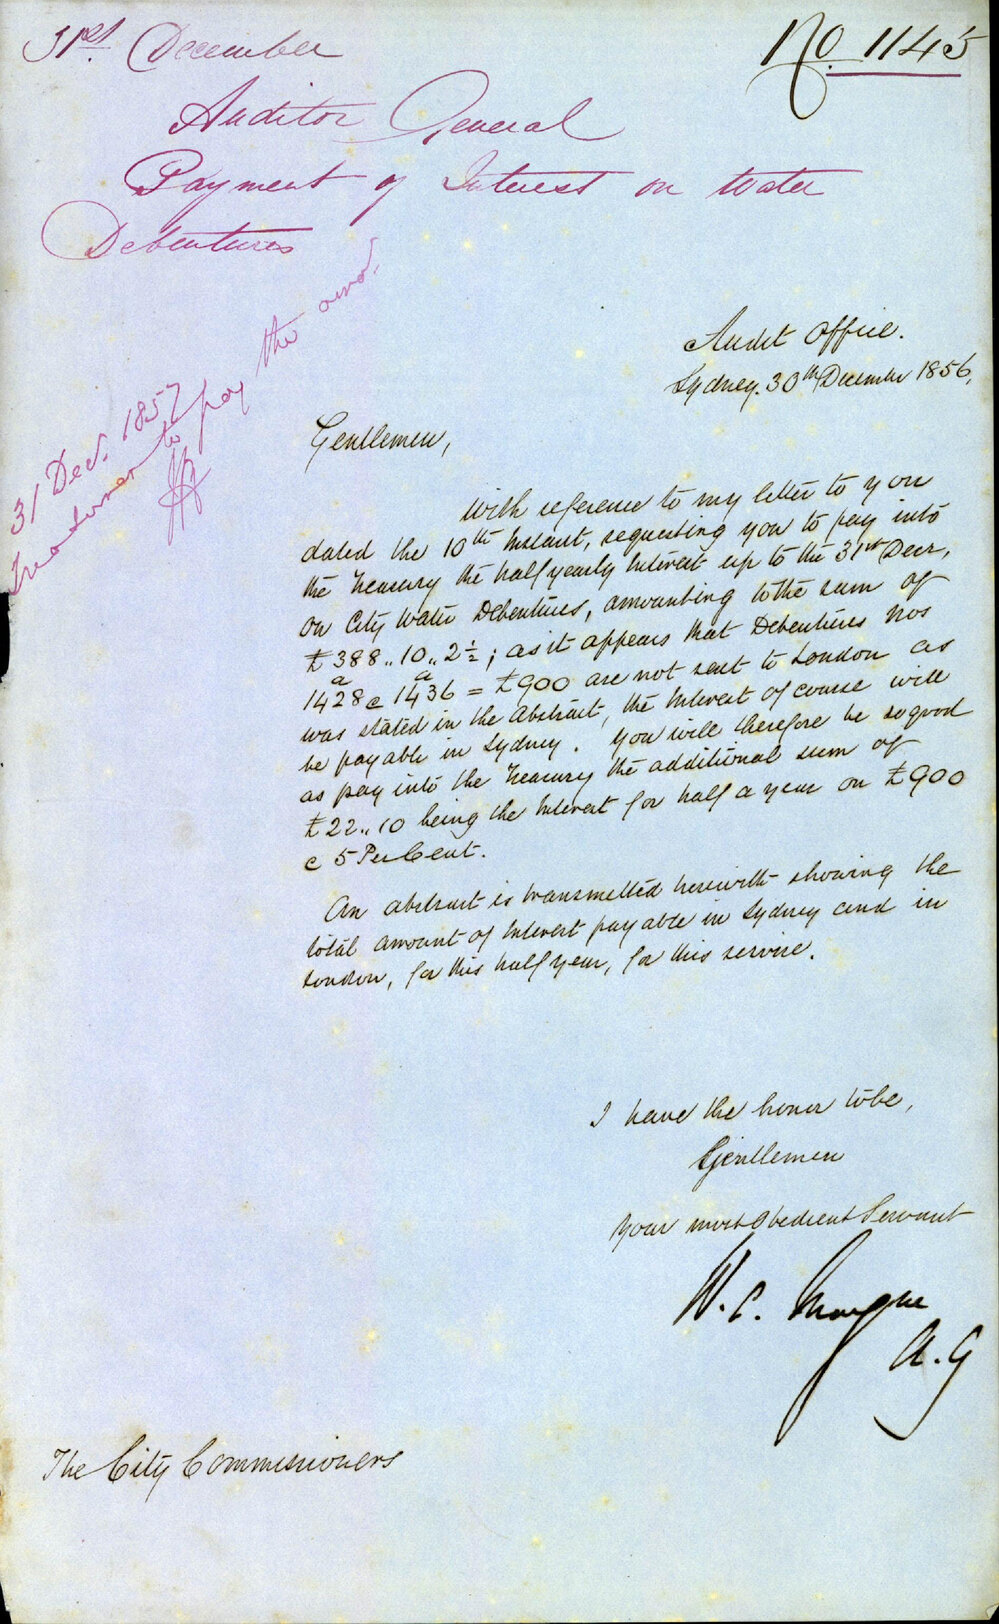 31st. December
No. 1145
Auditor General
Payment of Interest on Water
Debentures
31 Dec. 1857
Treasurer to pay the amot.
Audit Office.
Sydney. 30th December 1856,
Gentlemen,
With reference to my letter to you
dated the 10th Instant, requesting you to pay into
the Treasury the half yearly Interest up to the 31st Decr,
on City Water Debentures, amounting to the sum of
£388..10..2½; as it appears that Debentures Nos
1428a @ 1436a = £900 are not sent to London as
was stated in the Abstract, the Interest of course will
be payable in Sydney. You will therefore be so good
as pay into the Treasury the additional sum of
£22..10 being the Interest for half a year on £900
@ 5 Per Cent.
An abstract is transmitted herewith showing the
total amount of Interest payable in Sydney and in
London, for this half year, for this service.
I have the honor to be,
Gentlemen
Your most Obedient Servant
W. C. Mayne
A. G
The City Commissioners